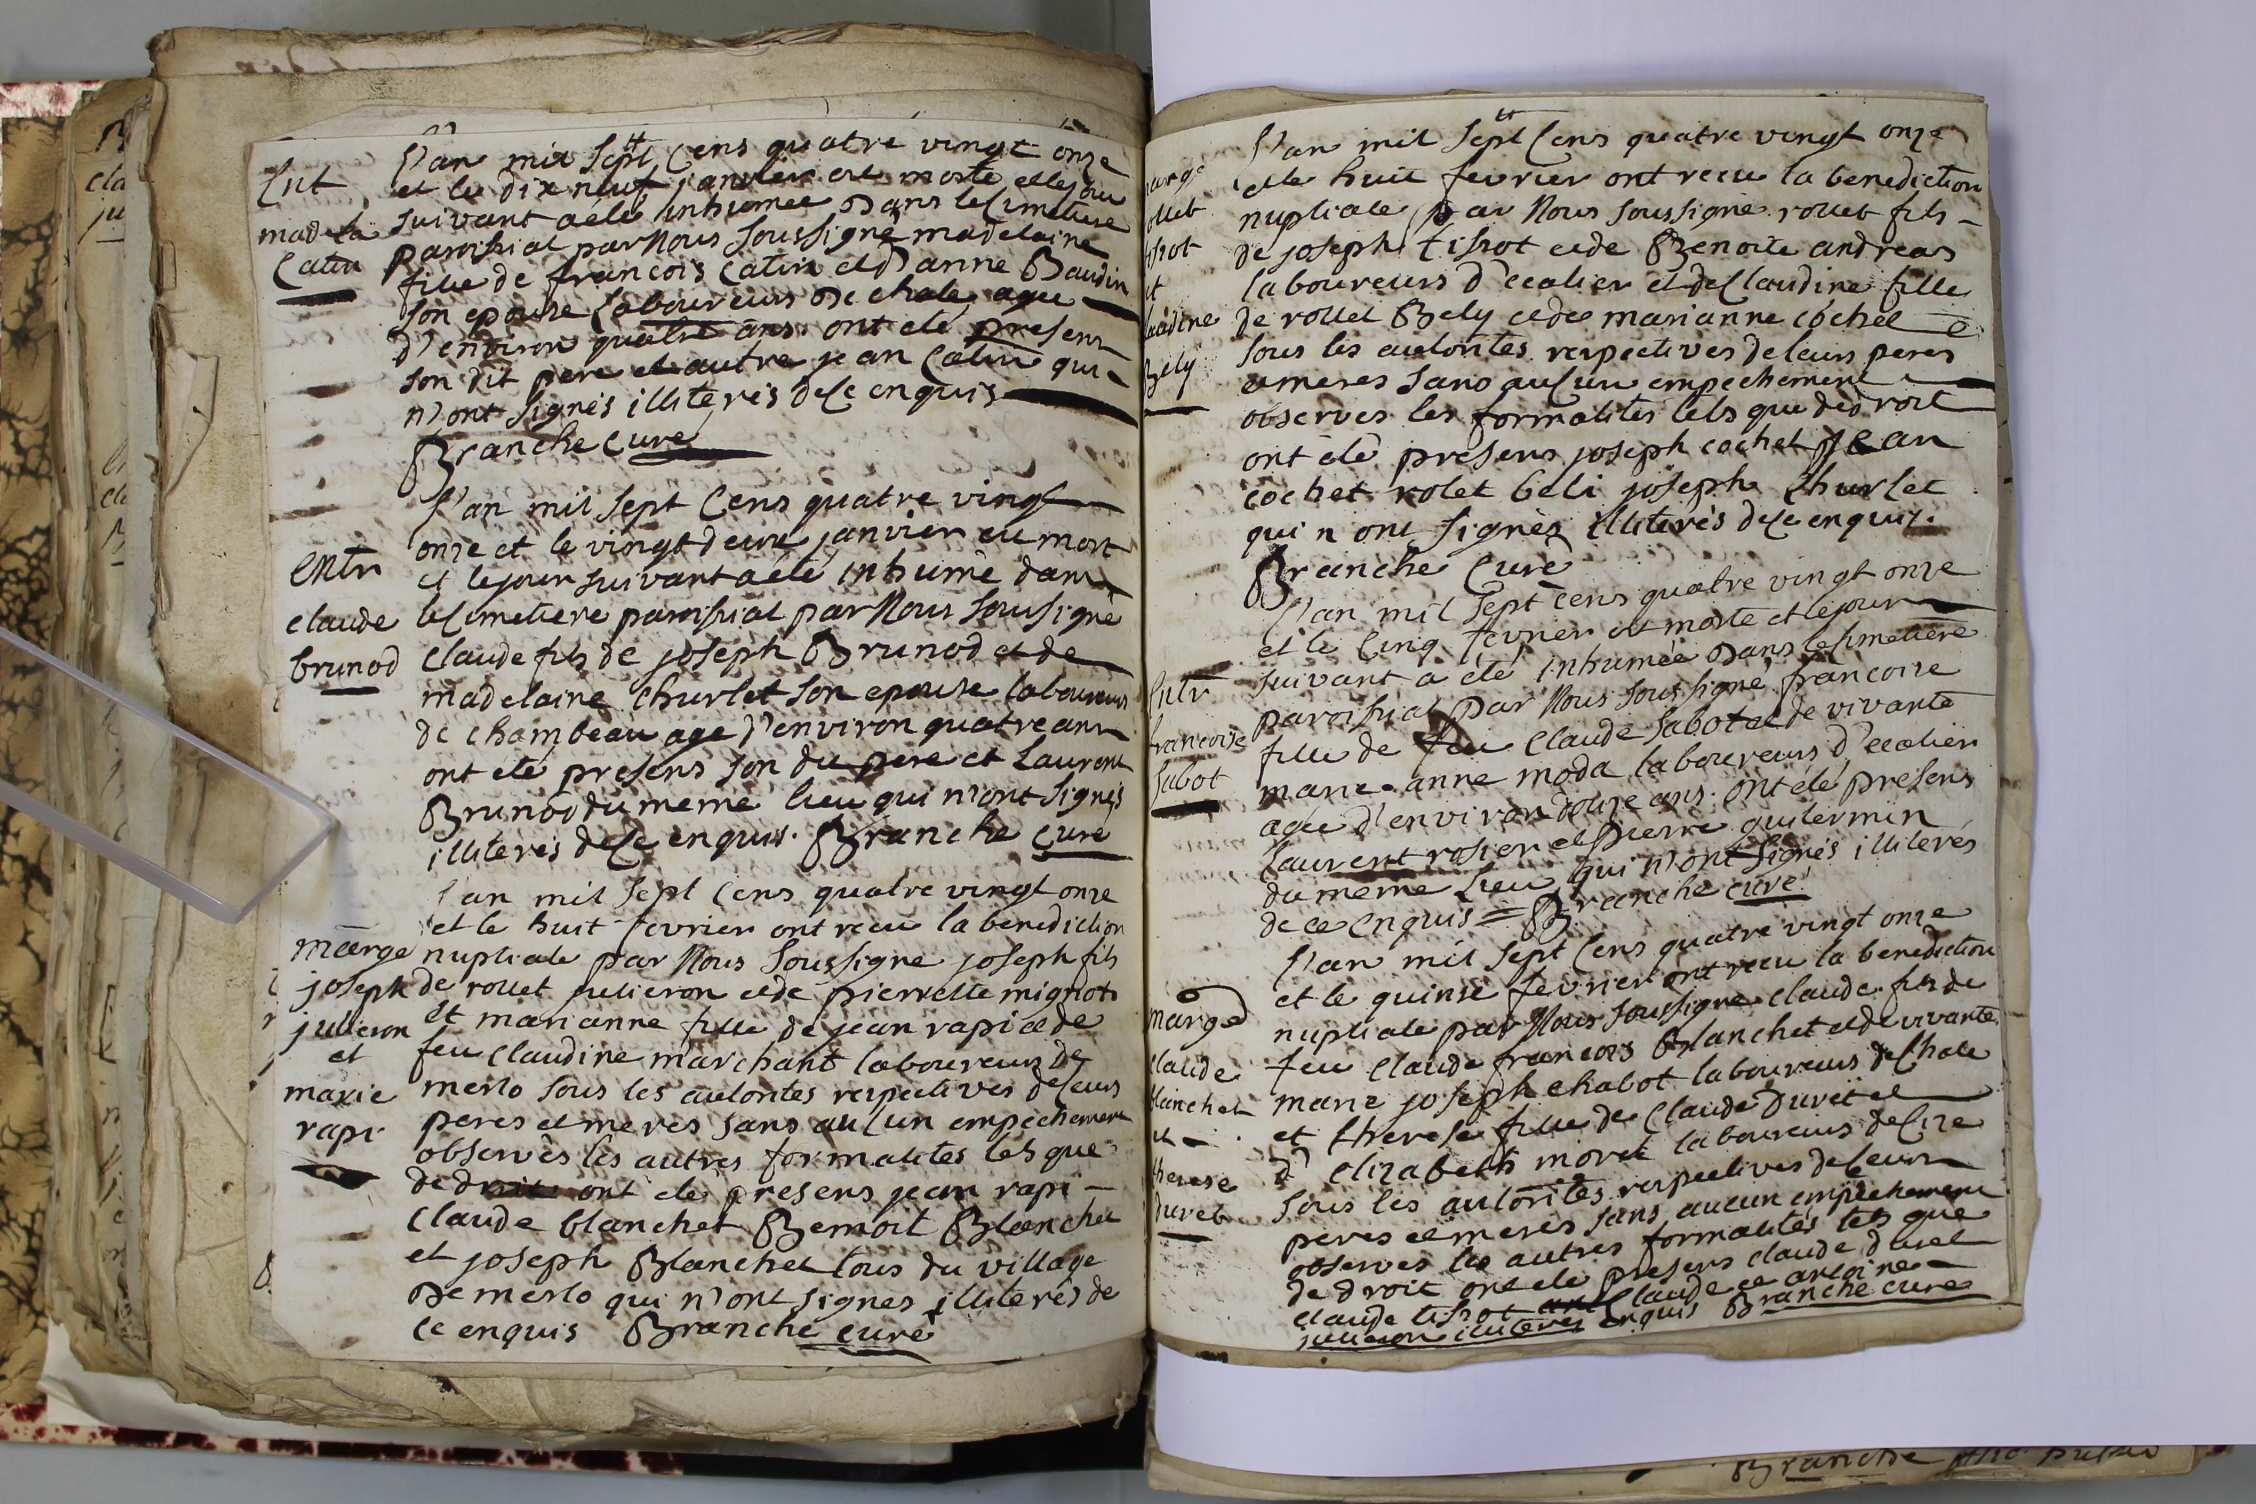 L'an mil sept cens quatre vingt onze
Ent et le dix neuf janvier est morte et lejour
suivant a été inhumee dans le Cimetiere
madela paroissial par Nous soussigné madelaine
Catin fille de francois Catin et d'anne Baudin
son epouse laboureurs de chale agee
d'environ quatre ans ont eté presens
son dit pere et autre jean Catin qui
n'ont signés illiterés de Ce enquis
Branche Curé
L'an mil sept Cens quatre vingt
onze et le vingt deux janvier est mort
Entr et lejour suivant a été inhumé dans
claude le Cimetiere paroissial par Nous soussigné
brunod Claude fils de joseph Brunod et de
madelaine Churlet son epouse laboureurs
de chambeau age d'environ quatre ans
ont eté presens son du pere et Laurent
Brunod du meme lieu qui n'ont signés
illiterés de Ce enquis. Branche Curé
l'an mil sept Cens quatre vingt onze
et le huit fevrier ont recu la benediction
märge nuptiale par Nous Soussigne joseph fils
joseph de rollet julieron et de pierrette mignot
julieron et marianne fille de jean rapi et de
et feu Claudine marchant laboureurs de
marie merlo sous les autorites respectives de leurs
rapi peres et meres sans auCun empechement
observés les autres formalites tels que
de droit ont ete presens jean rapi
Claude blanchet Bemoit Blanchet
et joseph Blanchet tous du village
De merlo qui n'ont signes illiterés de
Ce enquis Branche curé
L'an mil sept Cens quatre vingt onze
et le huit fevrier ont recu la benediction
nuptiale par Nous soussigné rollet fils
de joseph tissot et de Benoite andreas
laboureurs d'ecalier et de Claudine fille
de rollet Bely et de marianne cochet
Bely sous les autorites respectives de leurs peres
et meres sans auCun empechement
observes les formalites tels que de droit
ont été presens joseph cochet jean
cochet rolet beli joseph Churlet
qui n ont signés illiterés de Ce enquis.
Branche Curé
L'an mil sept cens quatre vingt onze
et le Cinq fevrier est morte et lejour
Entr suivant a été inhumée Dans le Cimetiere
paroissial par Nous soussigné francoise
francoise fille de feu Claude Sabot et de vivante
Sabot marie anne moda laboureurs d'ecalier
agee d'environ douze ans. ont été presens
Laurent rosier et pierre guilermin
du meme Lieu qui n'ont signés illiterés
de ce enquis = Branche curé
L'an mil sept Cens quatre vingt onze
et le quinse fevrier ont recu la benediction
marge nuptiale par Nous soussigne Claude fils de
Claude feu Claude francois Blanchet et de vivante
blanchet marie joseph chabot laboureurs de Chale
et et therese fille de Claude Duret et
therese d'elizabeth moret laboureurs de Cize
duret sous les autorités respectives de leurs
peres et meres sans aucun empechement
observes les autres formalités tels que
de droit ont ete presens claude duret
claude tissot Claude et antoine
julieron illiteres enquis Branche cure
Branche